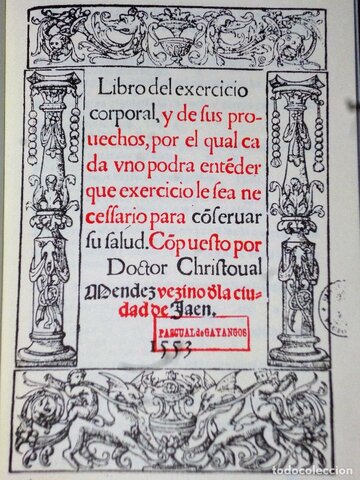 Libro del exercicio
corporal, y de sus pro
uechos, por el qual ca
da vno podra entẽder
que exercicio le sea ne
cessario para cõseruar
su salud. Cõpuesto por
Doctor Christoual
Mendez vezino đla ciu-
dad de Jaen.
PASCUAL de GAYANGOS
1553
todocoleccion